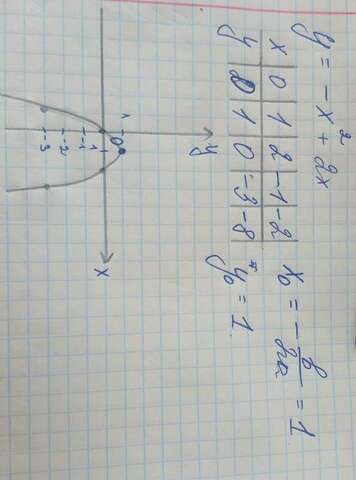 y = -x² + 2x
x | 0 | 1 | 2 | -1 | -2
y | 0 | 1 | 0 | -3 | -8
x₀ = -b/2a = 1
y₀ = 1
y
1
0
-1
-2
-3
1
x